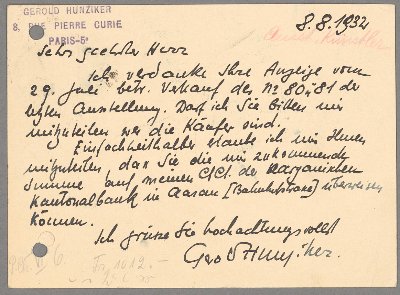 GEROLD HUNZIKER
8, RUE PIERRE CURIE
PARIS-5e
8.8.1932
Sehr geehrter Herr
Ich verdanke Ihre Anzeige vom
29. Juli betr. Verkauf der No 80 & 81 der
letzten Ausstellung. Darf ich Sie bitten mir
mitzuteilen wer die Käufer sind.
Einfachheithalber erlaube ich mir Ihnen
mitzuteilen, dass Sie die mir zukommende
Summe auf meinen C/Ct. der Aargauischen
Kantonalbank in Aarau [Bahnhofstrasse] überweisen
können.
Ich grüsse Sie hochachtungsvollst
Gerold Hunziker.
Fr. 1012.-